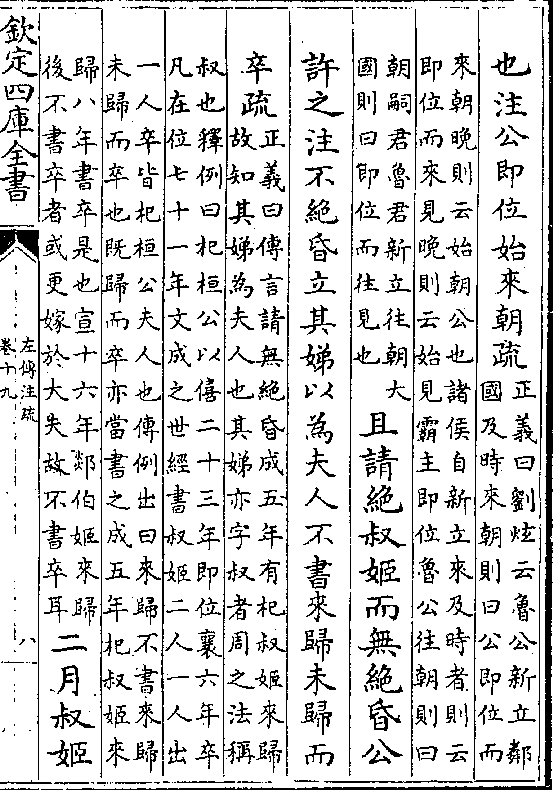 也注公即位始來朝疏
正義曰劉炫云魯公新立鄰
國及時來朝則曰公即位而
來朝晚則云始朝公也諸侯自新立來及時者則云
即位而來見晚則云始見霸主即位魯公往朝則曰
朝嗣君魯君新立往朝大
國則曰即位而往見也
且請絶叔姬而無絶昏公
許之注不絶昏立其娣以為夫人不書來歸未歸而
卒疏
正義曰傳言請無絶昏成五年有杞叔姬來歸
故知其娣為夫人也其娣亦字叔者周之法稱
叔也釋例曰杞桓公以僖二十三年即位襄六年卒
凡在位七十一年文成之世經書叔姬二人一人出
一人卒皆杞桓公夫人也傳例出曰來歸不書來歸
未歸而卒也既歸而卒亦當書之成五年杞叔姬來
歸八年書卒是也宣十六年郯伯姬來歸
後不書卒者或更嫁於大失故不書卒耳
二月叔姬
欽定四庫全書
左傳注疏
卷十九
八